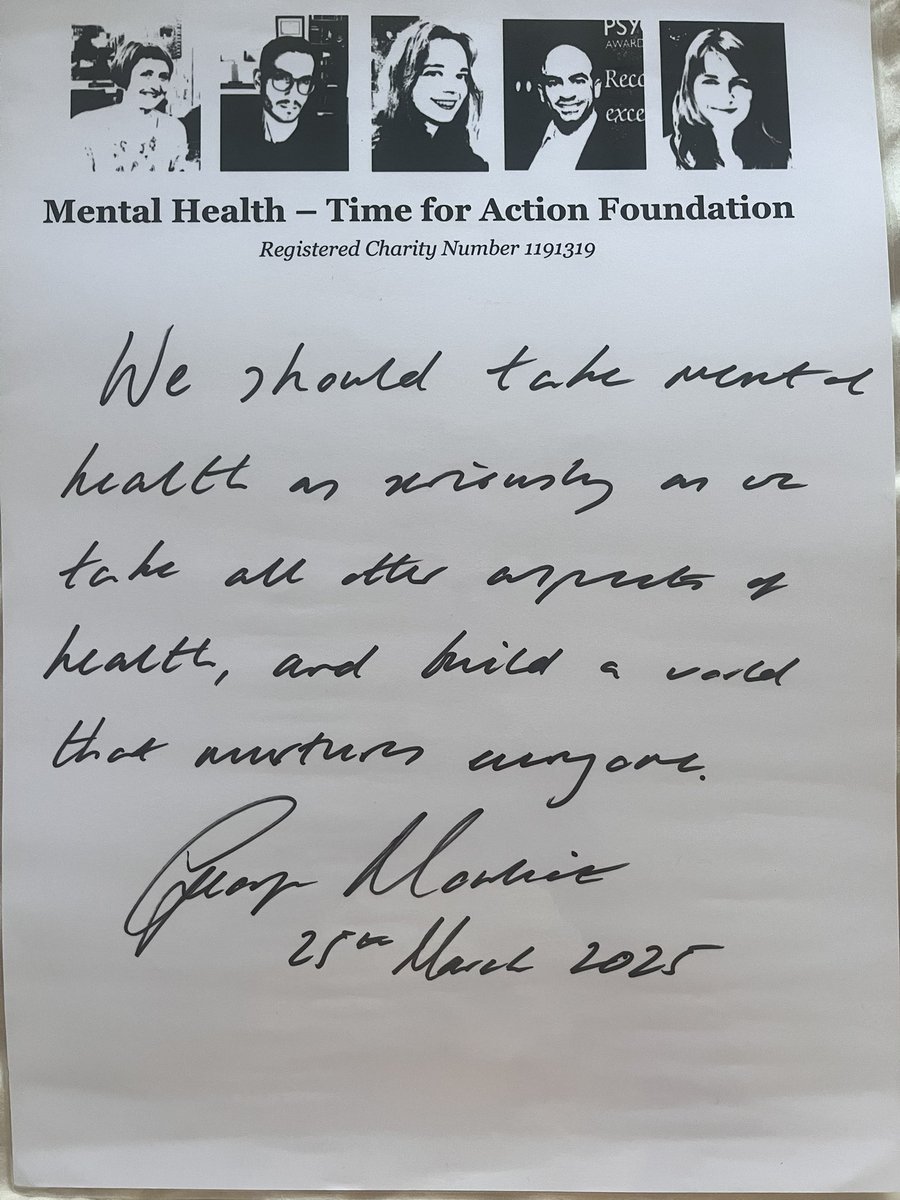 PSY
AWARD
Reco
exce
Mental Health – Time for Action Foundation
Registered Charity Number 1191319
We should take mental
health as seriously as we
take all other aspects of
health, and build a world
that nurtures everyone.
George Monbiot
25th March 2025